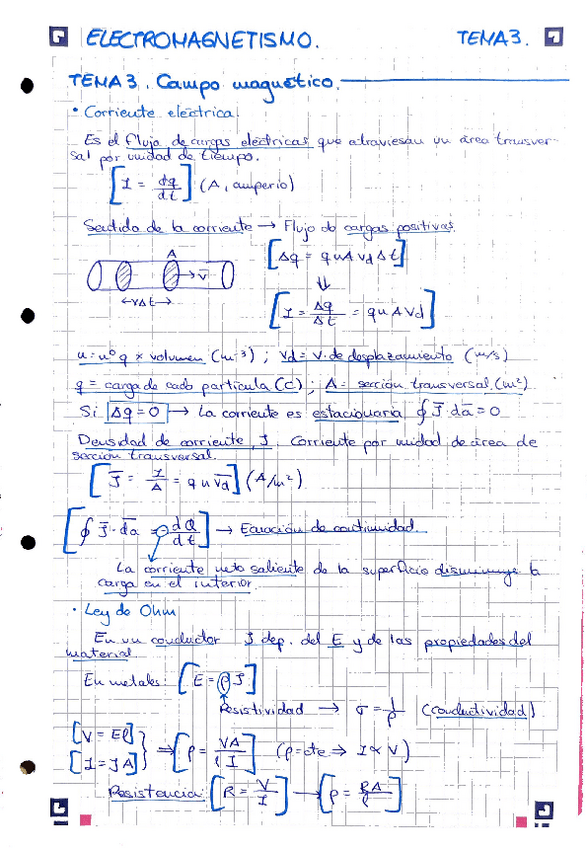 ELECTROMAGNETISMO. TEMA 3.
TEMA 3. Campo magnético.
• Corriente eléctrica.
Es el flujo de cargas eléctricas que atraviesan un área transver-
sal por unidad de tiempo.
[I = dq/dt] (A, amperio)
Sentido de la corriente → Flujo de cargas positivas.
[Δq = q n A vd Δt]
A
v̄
←vΔt→
⇓
[I = Δq/Δt = q n A vd]
n: nº q × volumen (m⁻³) ; vd = v. de desplazamiento (m/s)
q = carga de cada partícula (C) ; A = sección transversal (m²)
Si Δq = 0 → La corriente es estacionaria ∮ J̄·da̅ = 0
Densidad de corriente, J. Corriente por unidad de área de
sección transversal.
[J̄ = I/A = q n v̄d] (A/m²)
[∮ J̄·da̅ = - dQ/dt] → Ecuación de continuidad.
La corriente neta saliente de la superficie disminuye la
carga en el interior.
• Ley de Ohm
En un conductor J dep. del E y de las propiedades del
material
En metales: [E = ρJ]
Resistividad → σ = 1/ρ (conductividad)
[V = El]
[I = JA]
⇒ [ρ = VA/l I] (ρ = cte ⇒ I ∝ V)
Resistencia: [R = V/I] → [ρ = RA/l]